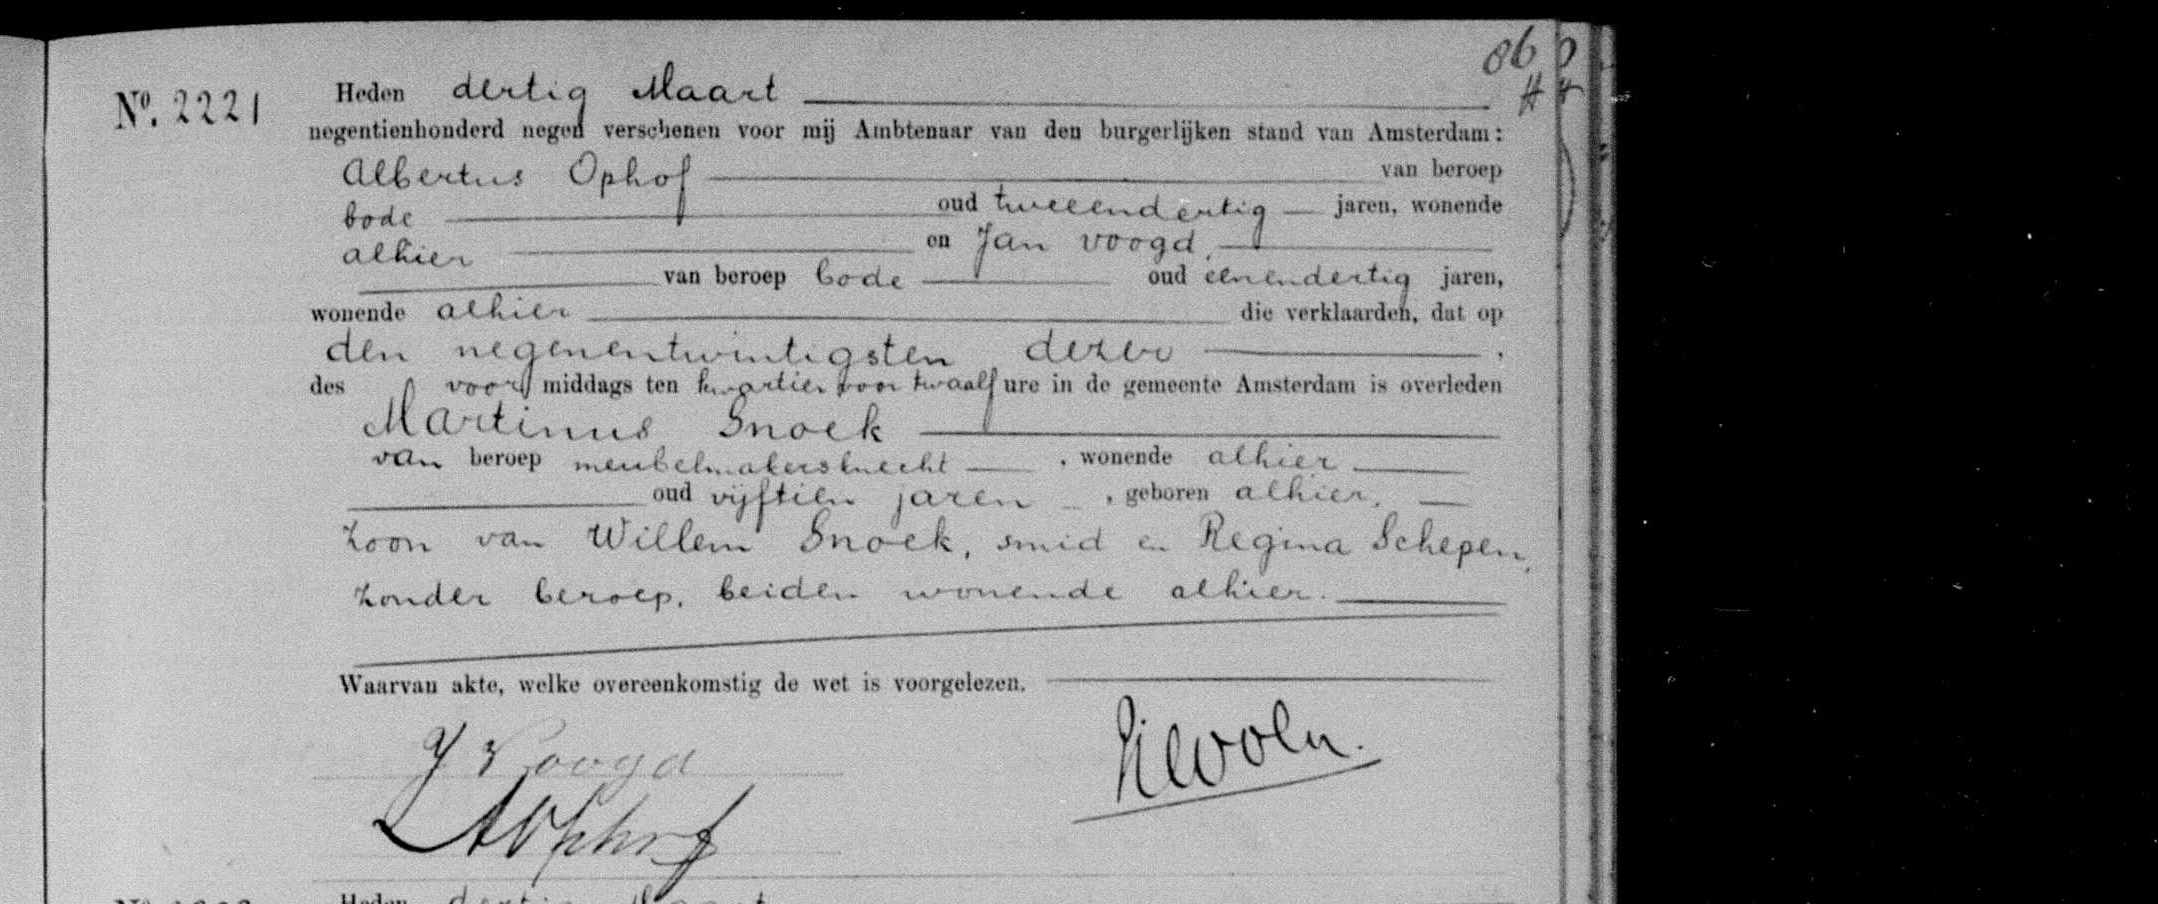 86
№. 2221 Heden dertig Maart
negentienhonderd negen verschenen voor mij Ambtenaar van den burgerlijken stand van Amsterdam:
Albertus Ophof van beroep
bode oud tweeendertig jaren, wonende
alhier en Jan Voogd,
van beroep bode oud eenendertig jaren,
wonende alhier die verklaarden, dat op
den negenentwintigsten dezer ,
des voor middags ten kwartier voor twaalf ure in de gemeente Amsterdam is overleden
Martinus Snoek
van beroep meubelmakersknecht , wonende alhier
oud vijftien jaren , geboren alhier,
zoon van Willem Snoek, smid en Regina Schepen,
zonder beroep, beiden wonende alhier.
Waarvan akte, welke overeenkomstig de wet is voorgelezen.
J Voogd
AOphof
Heden dertig Maart